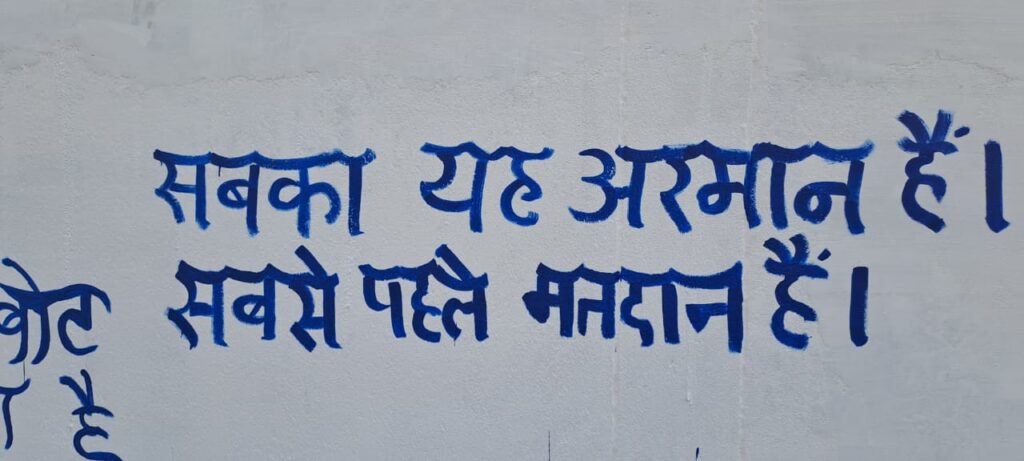 सबका यह अरमान हैं।
सबसे पहले मतदान हैं।
बोट
है